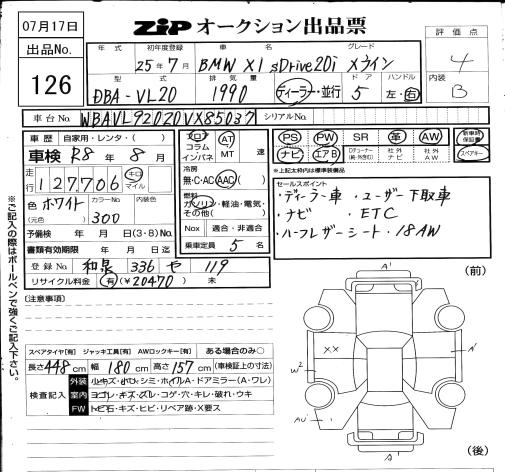 07月17日
ZIP オークション出品票
評価点
4
内装
B
出品No.
126
年式 初年度登録 車名 グレード
25年7月 BMW X1 sDrive20i Xライン
型式 排気量 ドア ハンドル
DBA-VL20 1990 ディーラー・並行 5 左・右
車台No. WBAVL92020VX85037 シリアルNo.
車歴 自家用・レンタ・( )
車検 R8年8月
走行 127,706 キロ マイル
色 ホワイト カラーNo. 300 内装色
(元色)
予備検 年 月 日(3・8)No.
書類有効期限 年 月 日
登録No. 和泉 336 せ 119
リサイクル料金 有(¥20470) 未
フロア コラム インパネ AT MT 速
冷房
無・C・AC AAC
燃料
ガソリン・軽油・電気・その他( )
Nox 適合・非適合
乗車定員 5 名
PS PW SR 革 AW 新車時保証書
ナビ エアB Dチューナー(純・外含む) 社外ナビ 社外AW スペアキー
※上記太枠内は標準装備品
セールスポイント
・ディーラー車 ・ユーザー下取車
・ナビ ・ETC
・ハーフレザーシート ・18AW
※ご記入の際はボールペンで強くご記入下さい。
(注意事項)
スペアタイヤ[有] ジャッキ工具[有] AWロックキー[有] ある場合のみ○
長さ448cm 幅180cm 高さ157cm (車検証上の寸法)
検査記入
外装 小キズ・小ヒ・シミ・ホイルA・ドアミラー(A・ワレ)
室内 ヨゴレ・キズ・スレ・コゲ・穴・キレ・破れ・ウキ
FW トビ石・キズ・ヒビ・リペア跡・X要ス
(前)
A'
XX
W2
A'
AU'
A'
(後)